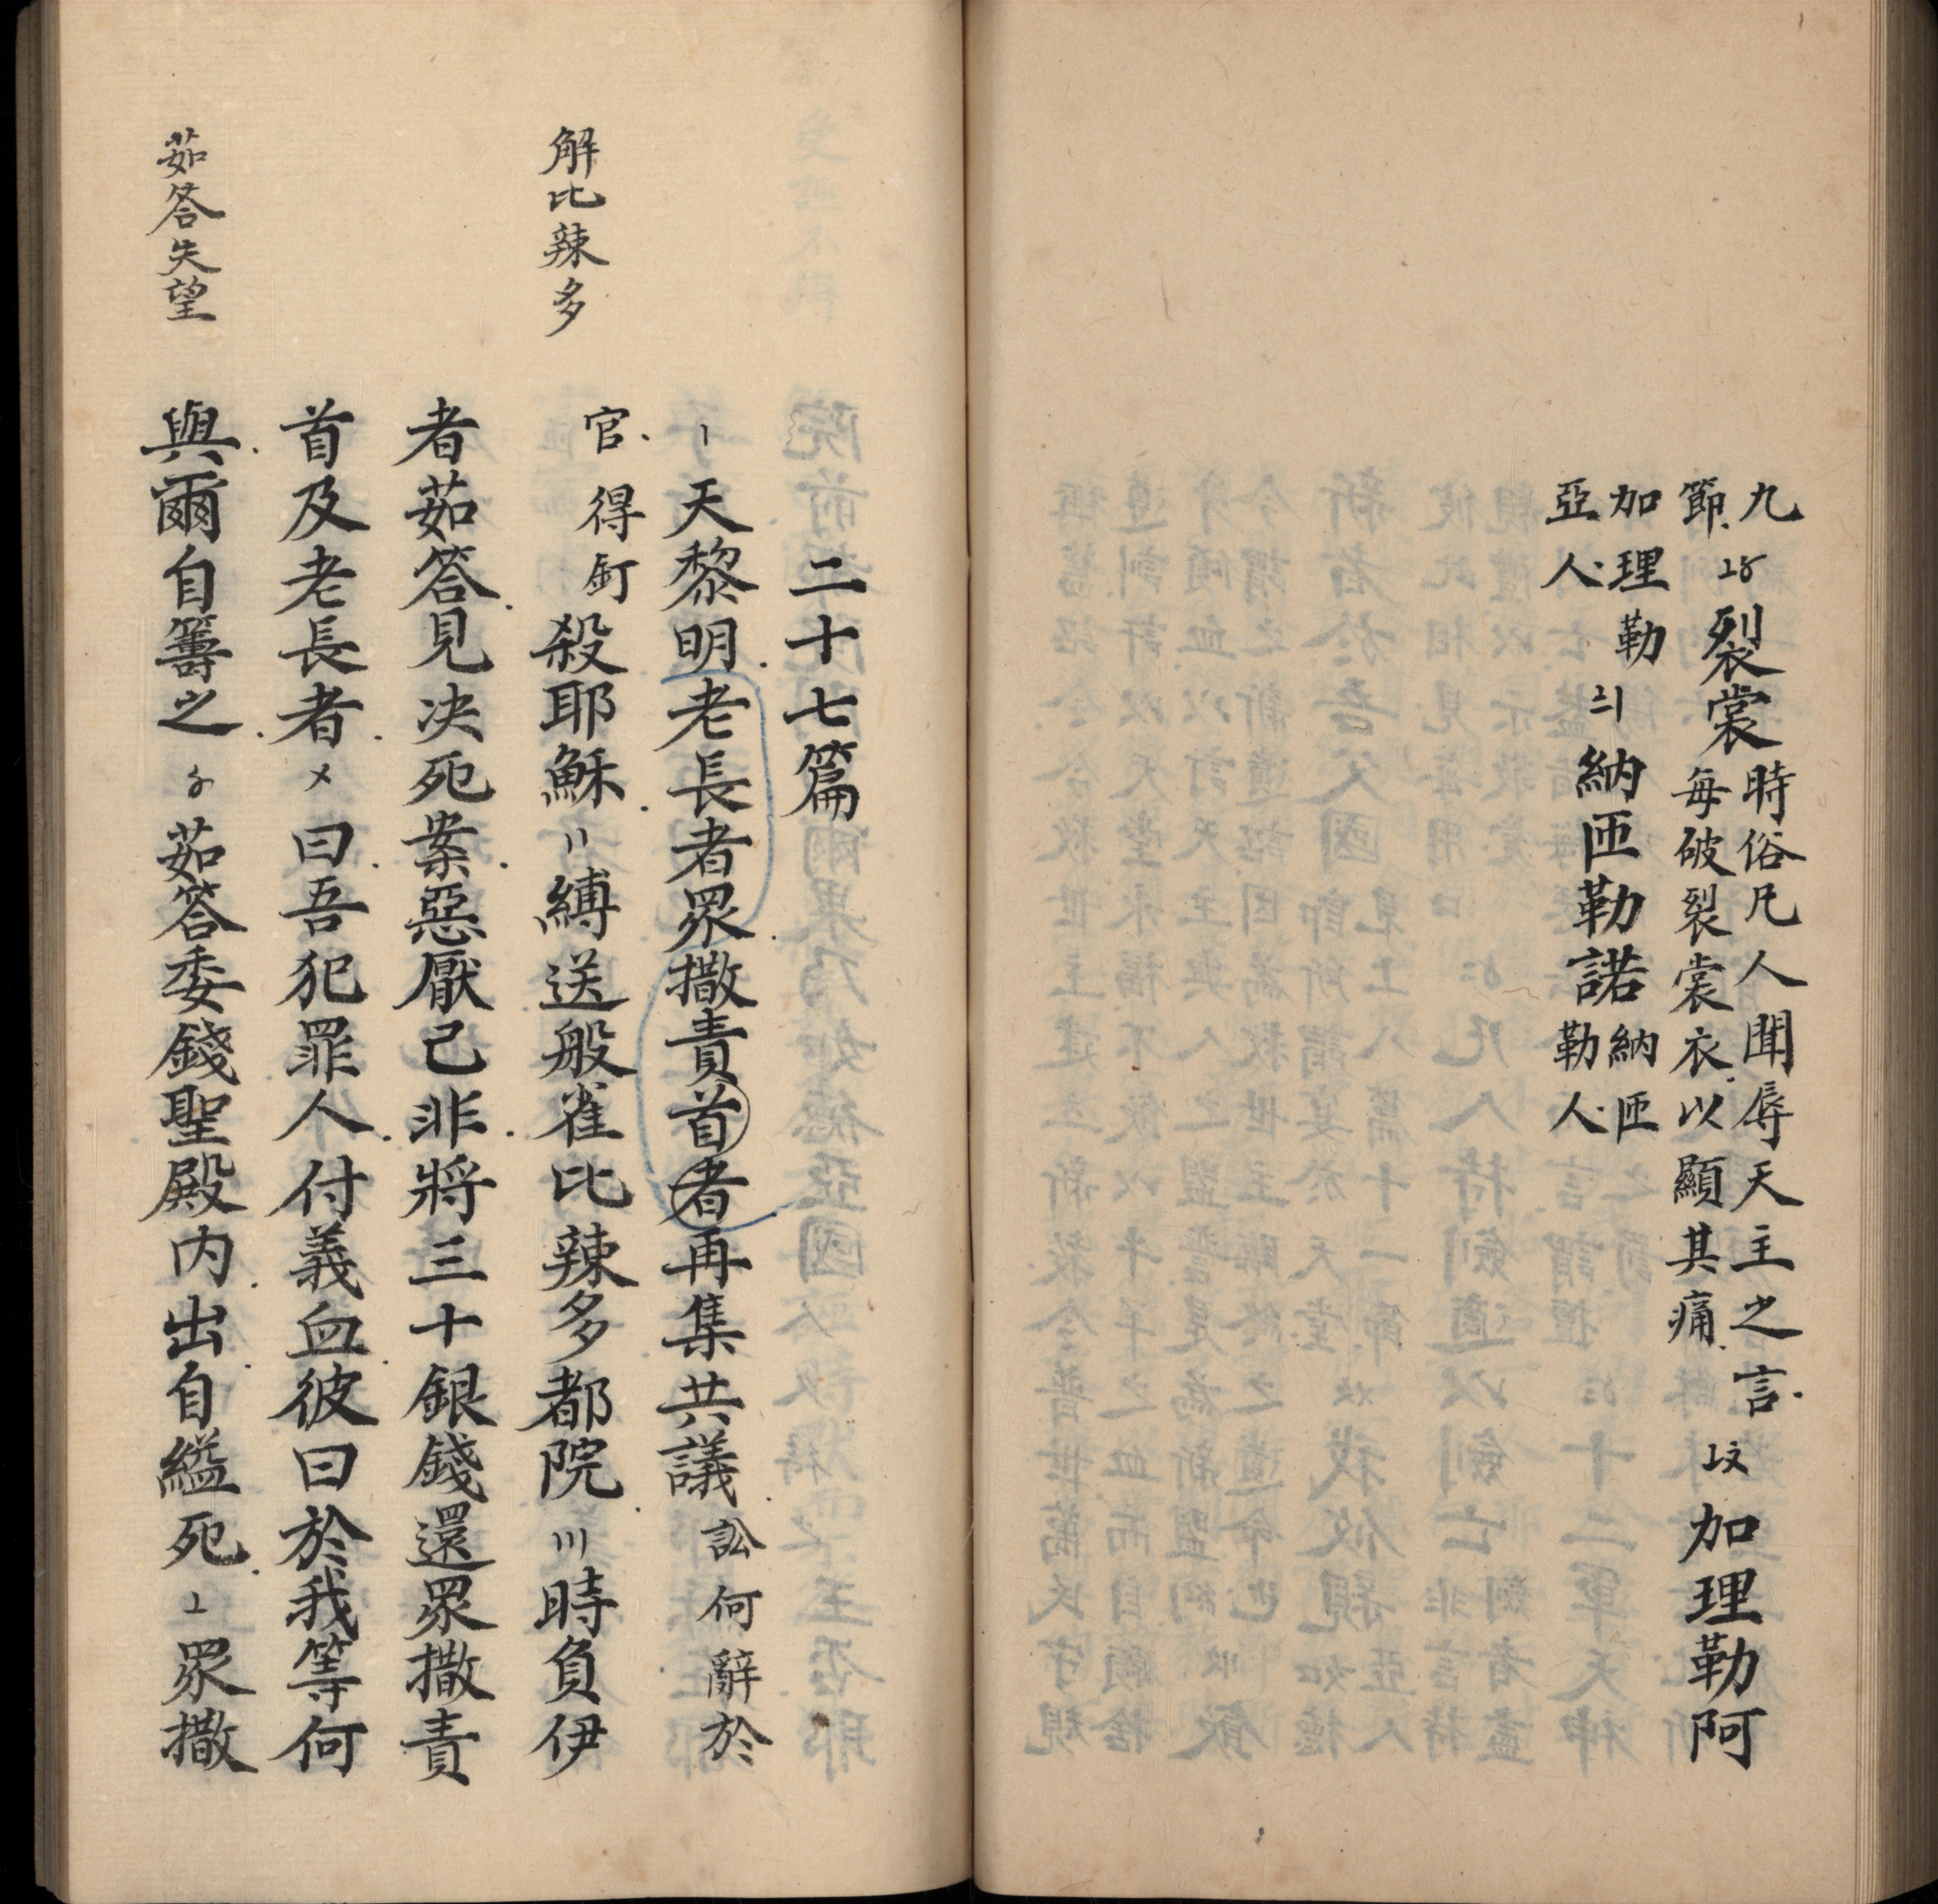 九
節〦〥裂裳時俗凡人聞辱天主之言
每破裂裳衣以顯其痛〦〩加理勒阿
加理勒
亞人〧〡納匝勒諾納匝
勒人
二十七篇
〡天黎明老長者眾撒責首者再集共議訟何辭於
解比辣多
官得釘殺耶穌〢縛送般雀比辣多都院〣時負伊
者茹答見决死案惡厭己非將三十銀錢還眾撒責
首及老長者〤曰吾犯罪人付義血彼曰於我等何
茹答失望
與爾自籌之〥茹答委錢聖殿内出自縊死〦眾撒